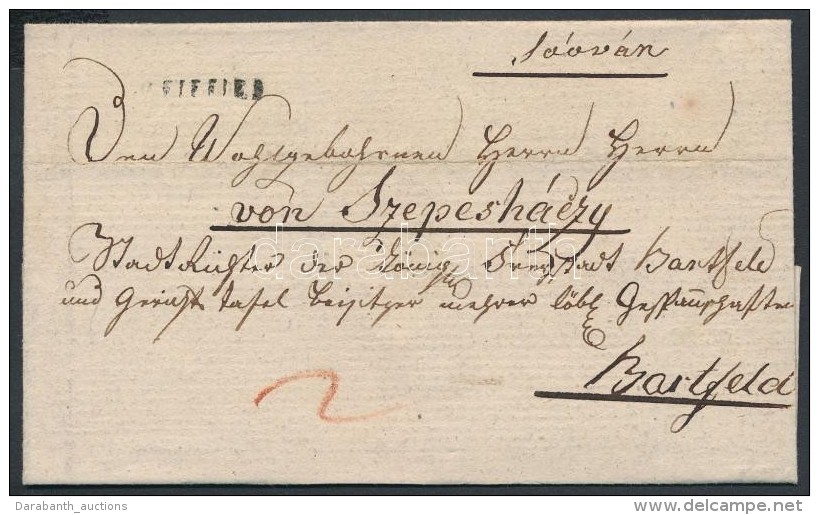 Sóován
Den Wohlgebohrnen Herrn Herrn
von Szepesházy
darabanth
StadtRichter der König Freystadt Bartfeld
und Gerichts tafel Beisitzer mehrer löbl Gespannschaften
Bartfeld
2
Darabanth_auctions
www.delcampe.net